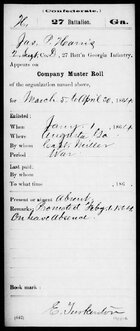 (Confederate.)
H 27 Battalion. Ga.
Jas. P. Harris
2 Sergt, Co. D, 27 Batt'n Georgia Infantry,
Appears on
Company Muster Roll
of the organization named above,
for March 5 to April 30, 1864.
Enlisted:
When Jany 1, 186
Where Augusta Ga
By whom Capt. Miller
Period War
Last paid:
By whom
To what time , 186 .
Present or absent Absent
Remarks:
On leave absence
Book mark:
(642)